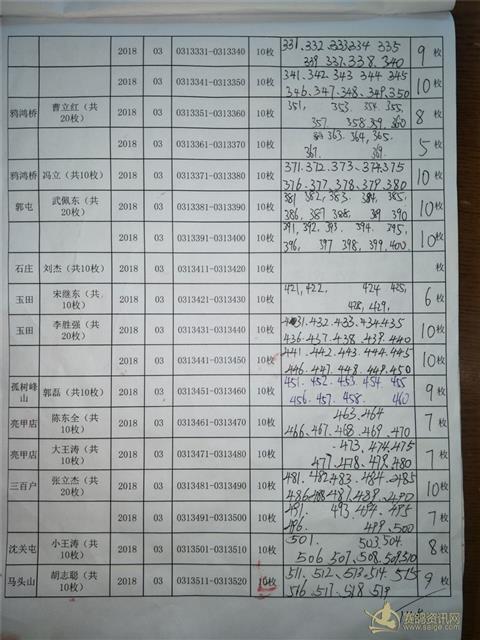 2018 03 0313331-0313340 10枚 331、332、333 334 335 9枚
339 337、338、340
2018 03 0313341-0313350 10枚 341、342、343 344 345 10枚
346、347、348、349、350
鸦鸿桥 曹立红（共20枚） 2018 03 0313351-0313360 10枚 351、 353、 354、355、 8枚
357、 358 359、360
2018 03 0313361-0313370 10枚 363、364、365、 5枚
367、 369、
鸦鸿桥 冯立（共10枚） 2018 03 0313371-0313380 10枚 371、372、373、374、375 10枚
376、377、378、379、380
郭屯 武佩东（共20枚） 2018 03 0313381-0313390 10枚 381 382、383、384、385、 10枚
386、387 388、 389 390
2018 03 0313391-0313400 10枚 391、392、393、 394、 395、 10枚
396、 397 398、399、400
石庄 刘杰（共10枚） 2018 03 0313411-0313420 10枚 枚
玉田 宋继东（共10枚） 2018 03 0313421-0313430 10枚 421、422、 424 425、 6枚
428、429、
玉田 李胜强（共20枚） 2018 03 0313431-0313440 10枚 431、432、433、434、435 10枚
436、437、438、439、440
2018 03 0313441-0313450 10枚 441、442、443、444、445 10枚
446、447、448、449、450
孤树峰山 郭磊（共10枚） 2018 03 0313451-0313460 10枚 451、452、453、454、455 9枚
456、457、458、 460
亮甲店 陈东全（共10枚） 2018 03 0313461-0313470 10枚 463、464 7枚
466、467、468、469、470
亮甲店 大王涛（共10枚） 2018 03 0313471-0313480 10枚 473、474、475 7枚
477、478、479、480
三百户 张立杰（共20枚） 2018 03 0313481-0313490 10枚 481、482、483、484、485 10枚
486、488、487、489、490
2018 03 0313491-0313500 10枚 491、 493、494、495 7枚
496、 499、500
沈关屯 小王涛（共10枚） 2018 03 0313501-0313510 10枚 501、 503、504、 8枚
506、507、508、509、510
马头山 胡志聪（共10枚） 2018 03 0313511-0313520 10枚 511、512、513、514、515 9枚
516、517、518、519
赛鸽资讯网
www.saige.com